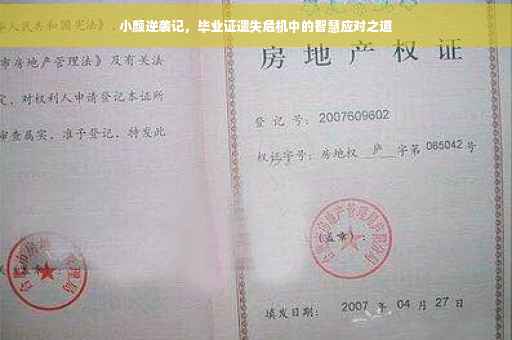 小颜逆袭记，毕业证遗失危机中的智慧应对之道
人民共和国宪法》、
市房地产管理法》及有关法
定，对权利人申请登记本证所
审查属实，准予登记，特发此
房地产权证
登记号：2007609602
权证字号：房地权 庐 字第 065042 号
（盖章）：
填发日期：2007 年 04 月 27 日